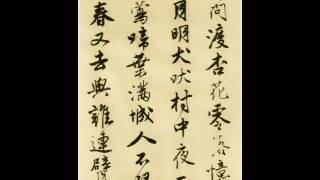 問渡杏花零落憶
月明犬吠村中夜
鶯啼葉滿城人不
春又去與誰連